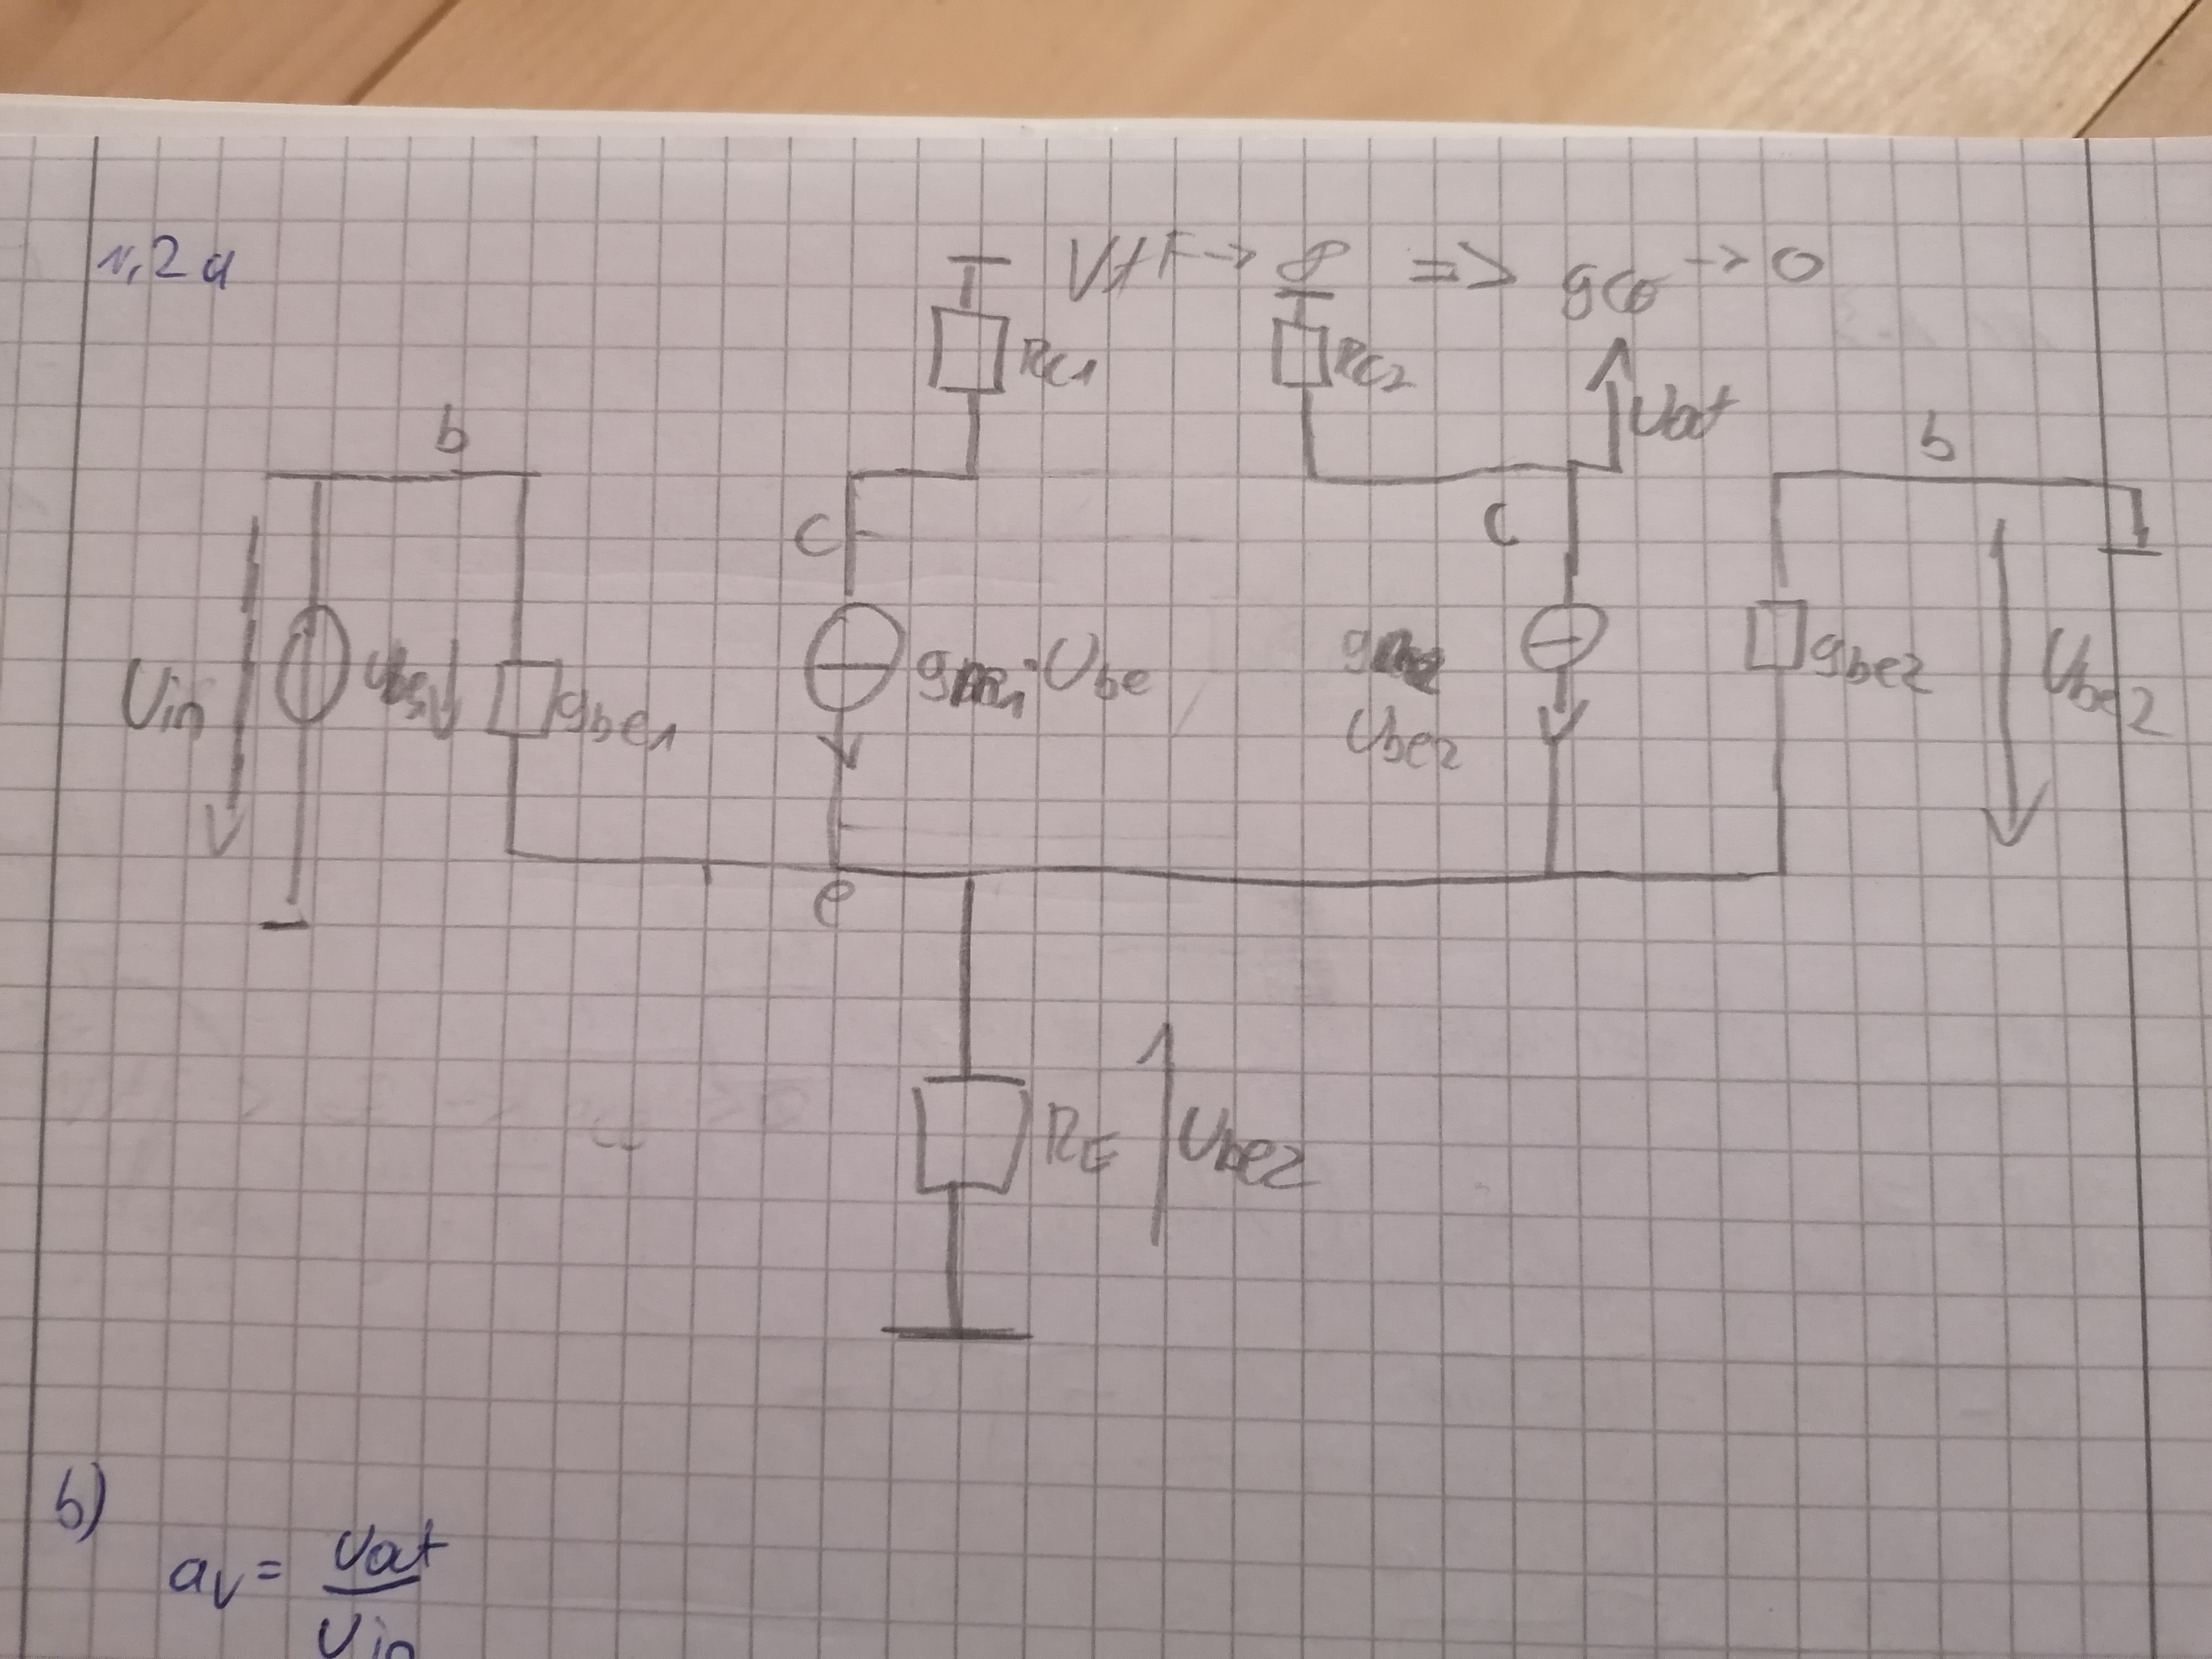 1,2 a
VAF -> ∞ => gce -> 0
RC1
RC2
Uout
b
b
c
c
Uin
Ube1
gbe1
gm1 · Ube
gm2
Ube2
gbe2
Ube2
e
RE
Ube2
b)
av = Uout
Uin